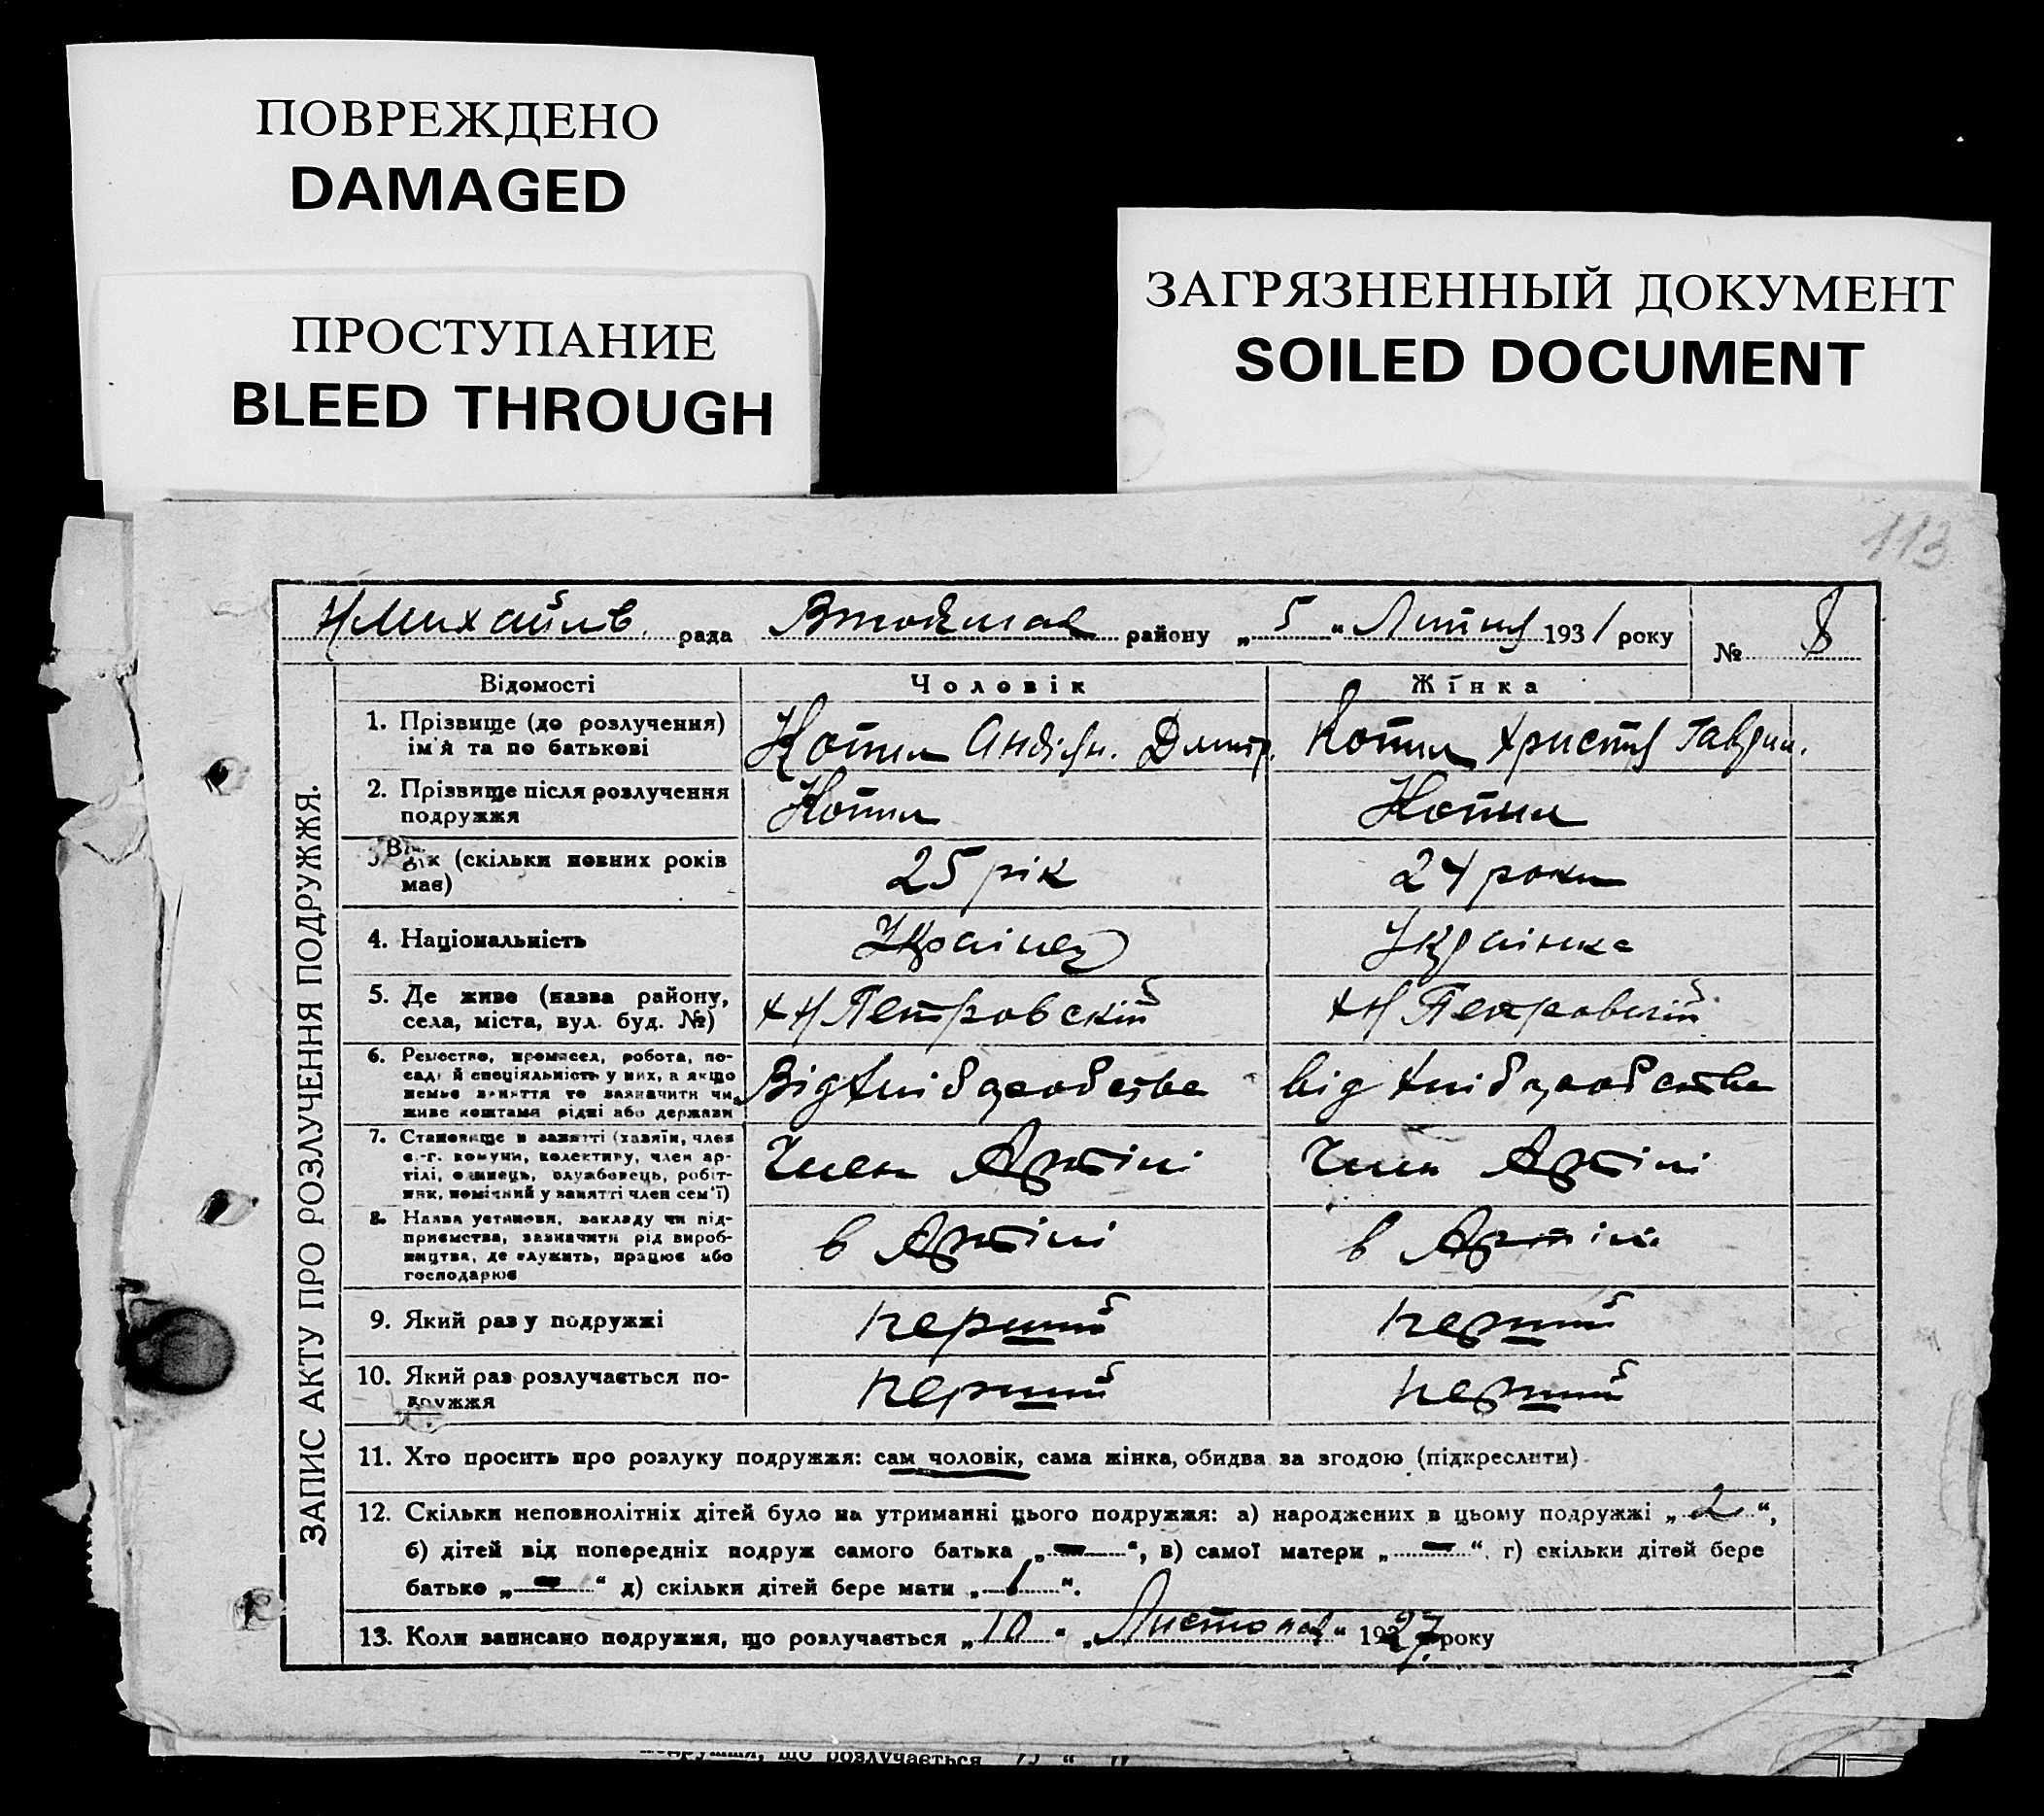 ПОВРЕЖДЕНО
DAMAGED
ПРОСТУПАНИЕ
BLEED THROUGH
ЗАГРЯЗНЕННЫЙ ДОКУМЕНТ
SOILED DOCUMENT
113
НМихайлів. рада району „ 5 “ Лютня 1931 року № 8
ЗАПИС АКТУ ПРО РОЗЛУЧЕННЯ ПОДРУЖЖЯ.
Відомості Чоловік Жінка
1. Прізвище (до розлучення)
ім'я та по батькові
Котил Андріян. Дмитр. Котил Христя Гаврил.
2. Прізвище після розлучення
подружжя
Котил Котил
Вік (скільки повних років
має)
25 рік 24 роки
4. Національність Українец Українка
5. Де живе (назва району,
села, міста, вул. буд. №)
хН Петровскій хН Петровскій
6. Ремество, промисел, робота, по-
сада й спеціяльність у них, а якщо
немає заняття то зазначити чи
живе коштами рідні або держави
Від хлібдаробства від хлібдаробства
7. Становище в занятті (хазяїн, член
с.-г. комуни, колективу, член ар-
тілі, одинець, службовець, робіт-
ник, помічний у занятті член сем'ї)
Член Артілі Член Артілі
8. Назва установи, закладу чи під-
приємства, зазначити рід вироб-
ництва, де служить, працює або
господарює
в Артілі в Артілі
9. Який раз у подружжі перший перший
10. Який раз розлучається по-
дружжя
перший перший
11. Хто просить про розлуку подружжя: сам чоловік, сама жінка, обидва за згодою (підкреслити)
12. Скільки неповнолітніх дітей було на утриманні цього подружжя: а) народжених в цьому подружжі „ 2 “,
б) дітей від попередніх подруж самого батька „ — “, в) самої матери „ — “. г) скільки дітей бере
батько „ — “ д) скільки дітей бере мати „ 1 “.
13. Коли записано подружжя, що розлучається „ 10 “ „ Листопад “ 1927 року
подружжя, що розлучається